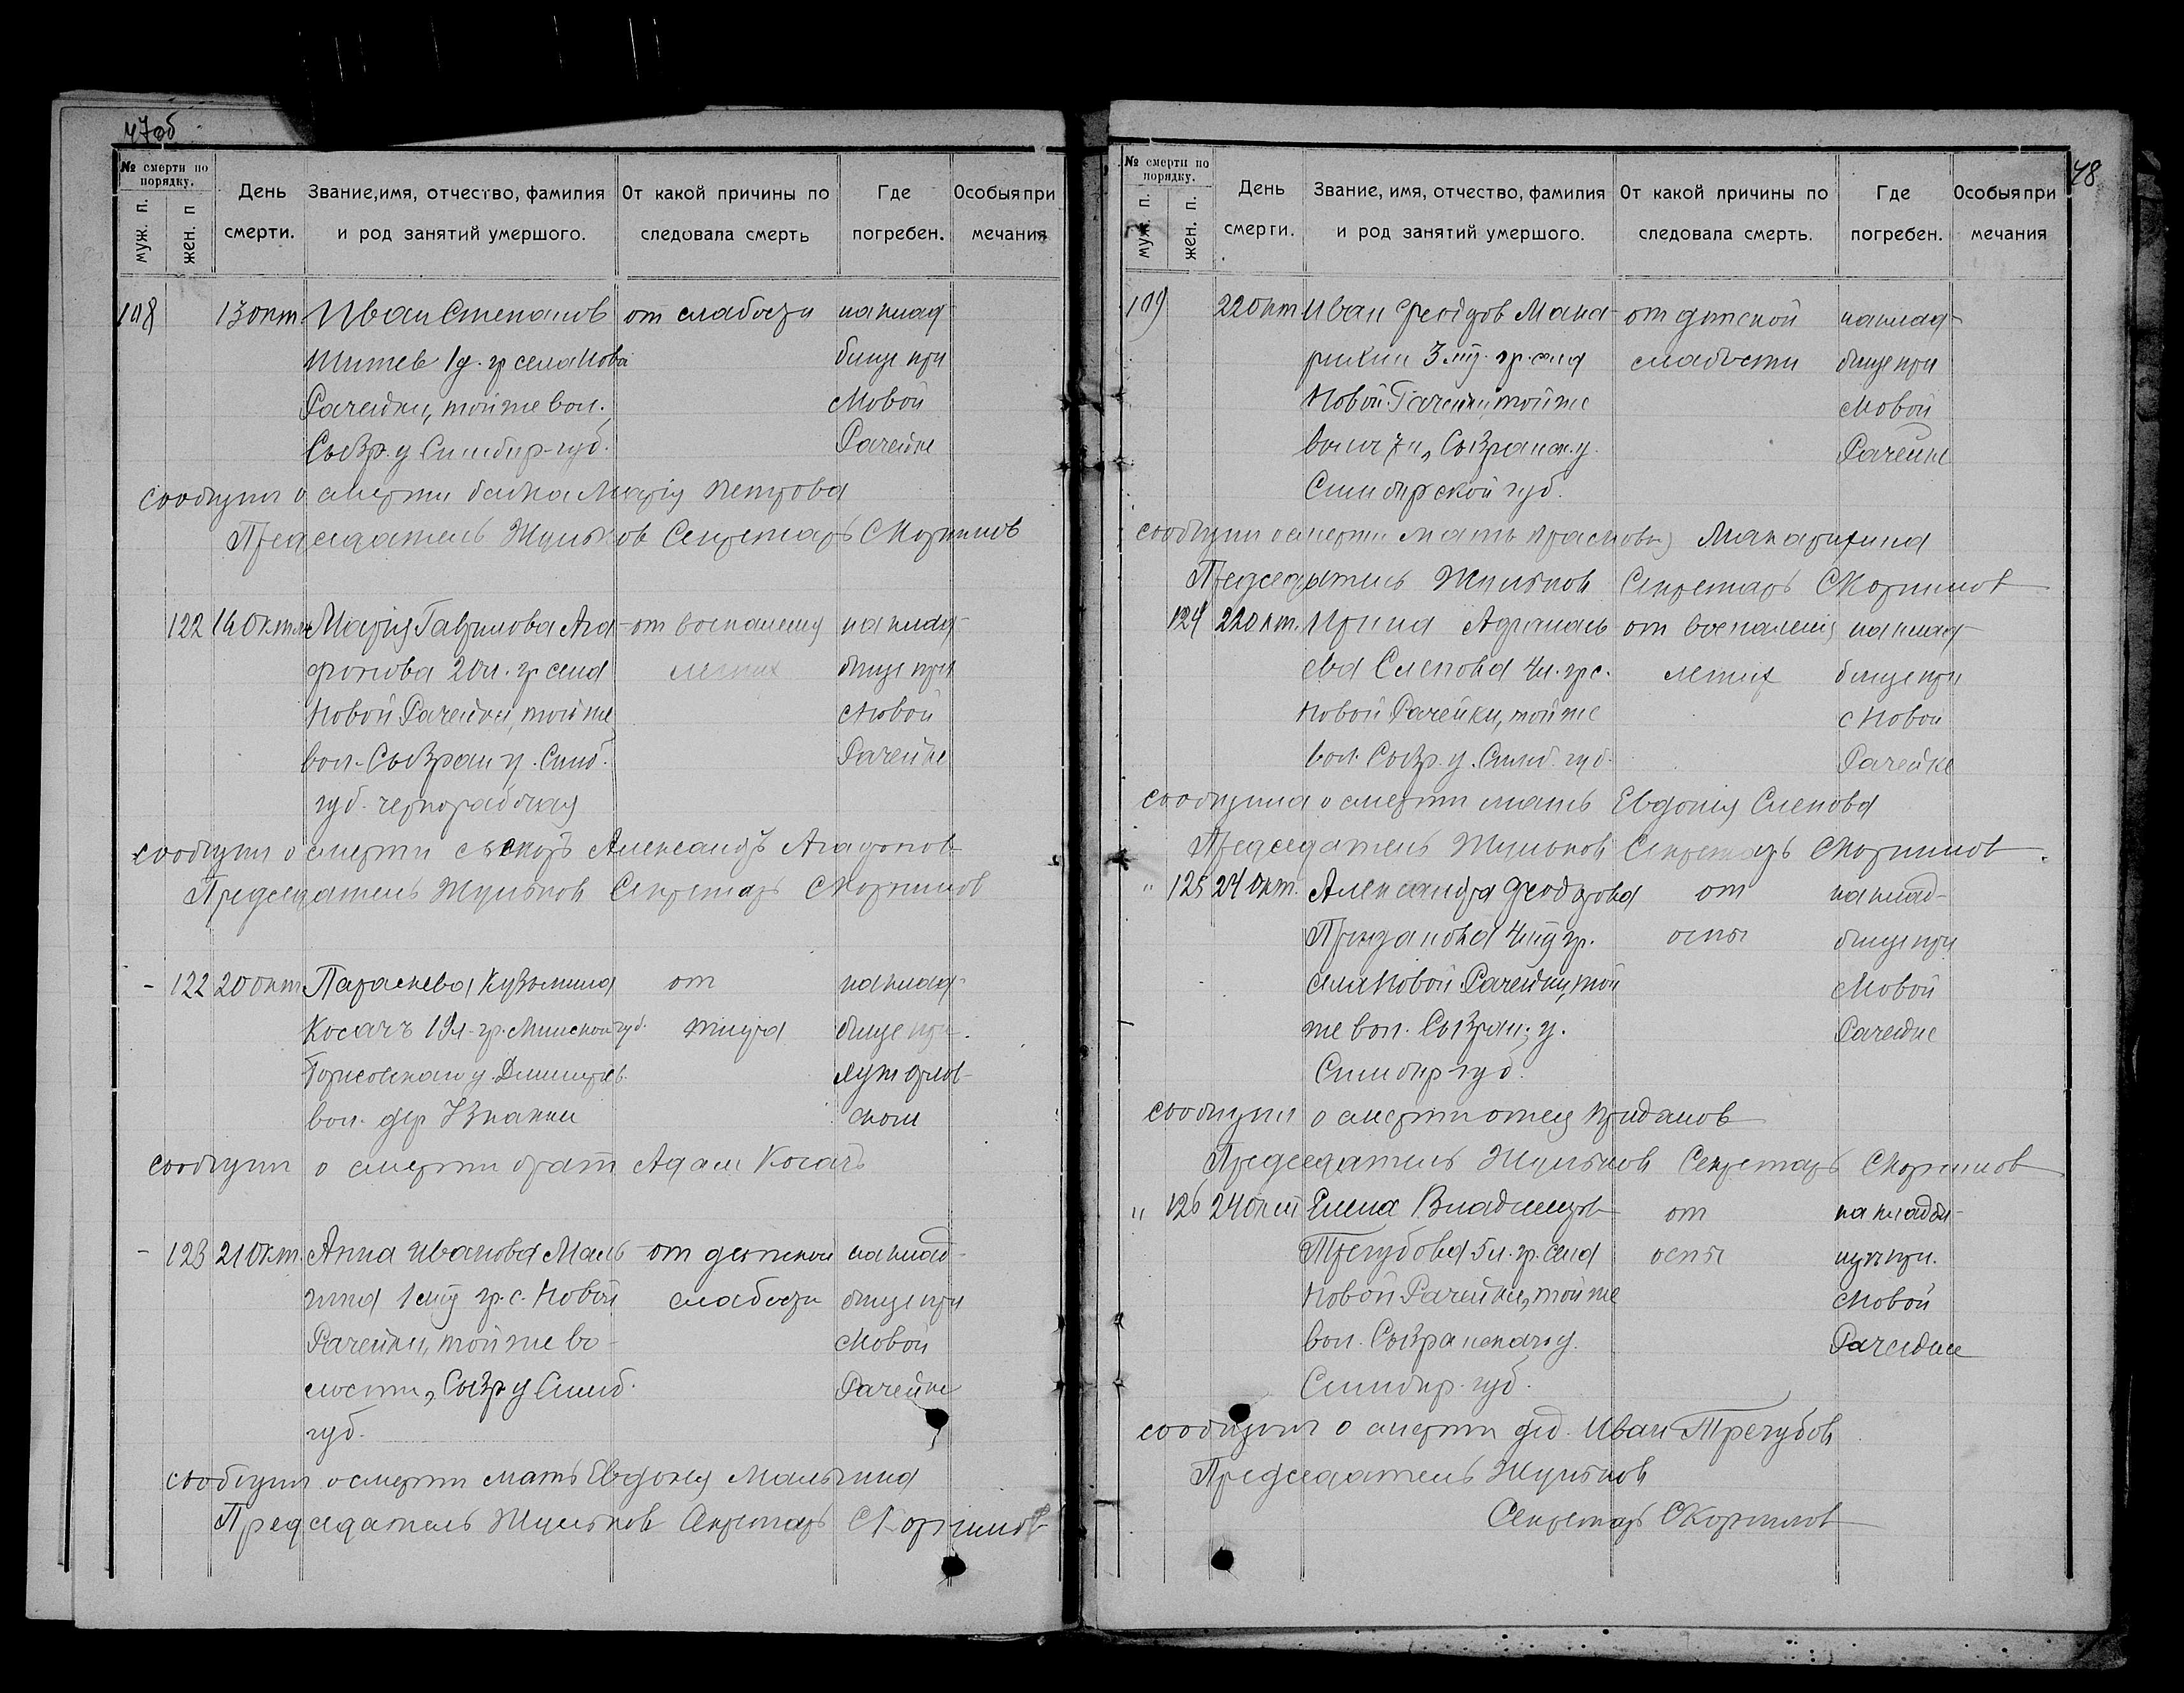 47об
№ смерти по порядку.
муж. п.
жен. п
День смерти.
Звание, имя, отчество, фамилия и род занятий умершого.
От какой причины последовала смерть
Где погребен.
Особыя примечания
108 13 окт Иван Степанов от слабости на клад-
1 д. гр села Нова бище при
Рачейки, той же вол. с Новой
Сызр. у Симбир. губ. Рачейке
сообщил о смерти бабка Мария Петрова
Председатель Жульков Секретарь С Корнилов
122 16 окт Мария Гаврилова Ага- от воспаления на клад-
фонова 20 л. гр села легких бище при
Новой Рачейки, той же с Новой
вол. Сызран у. Симб. Рачейке
губ. чернорабочая
сообщил о смерти свекор Александр Агафонов
Председатель Жульков Секретарь С Корнилов
- 122 20 окт Параскева Кузьмина от на клад-
Косачъ 19 л. гр. Минской губ. тифа бище при
Борисовскаго у.
вол. дер
сообщил о смерти брат Адам Косачъ
- 123 21 окт. Анна Иванова Маль- от детской на клад-
гина 1 мц гр. с. Новой слабости бище при
Рачейки, той же во- с Новой
лости, Сызр у Симб. Рачейке
губ.
сообщил о смерти мать Евдокия Мальгина
Председатель Жульков Секретарь С Корнилов
48
№ смерти по порядку.
муж. п.
жен. п.
День смерти.
Звание, имя, отчество, фамилия и род занятий умершого.
От какой причины последовала смерть.
Где погребен.
Особыя примечания
109 22 окт Иван Федоров Мака- от детской на клад-
рихин 3 мц. гр. села слабости бище при
Новой Рачейки той же с Новой
волости, Сызранск. у. Рачейке
Симбирской губ.
сообщил о смерти мать Макарихина
Председатель Жульков Секретарь С Корнилов
124 22 окт. Ирина от воспаления на клад-
ева Слепова 4 л. гр с. легких бище при
Новой Рачейки, той же с Новой
вол. Сызр. у. Симб. губ. Рачейке
сообщила о смерти мать Евдокия Слепова
Председатель Жульков Секретарь С Корнилов
" 125 24 окт. Александра Феодорова от на клад-
Приданова 4 мц гр. оспы бище при
села Новой Рачейки, той с Новой
же вол. Сызран. у. Рачейке
Симбир губ.
сообщил о смерти отец Приданов
Председатель Жульков Секретарь Скорнилов
" 126 24 окт Елена Владимиров от на кладби-
Трегубова 5 л. гр. села оспы щи при.
Новой Рачейки, той же с Новой
вол. Сызранскаго у. Рачейке
Симбир. губ.
сообщил о смерти дед. Иван Трегубов
Председатель Жульков
Секретарь С Корнилов